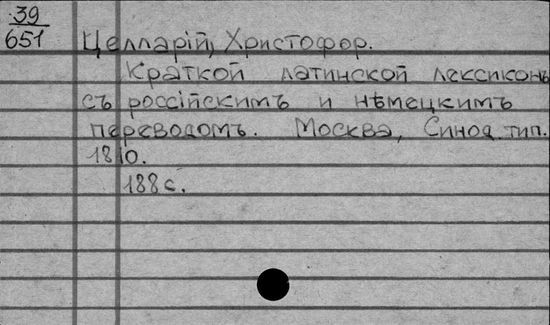 39
651
Целларій, Христофор.
Краткой латинской лексиконъ
съ россійскимъ и нѣмецкимъ
переводомъ. Москва, Синод. тип.
1810.
188 с.